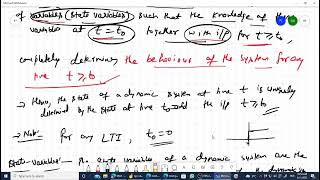 of variables (state variables) such that the knowledge of these
variables at t = t₀ together with i/p for t ≥ t₀
completely determines the behaviour of the system for any
time t ≥ t₀
→ Hence, the state of a dynamic system at time t is uniquely
determined by the state at time t₀ and the i/p t ≥ t₀
→ Note: for any LTI, t₀ = 0
State-variables:- The state variables of a dynamic system are the